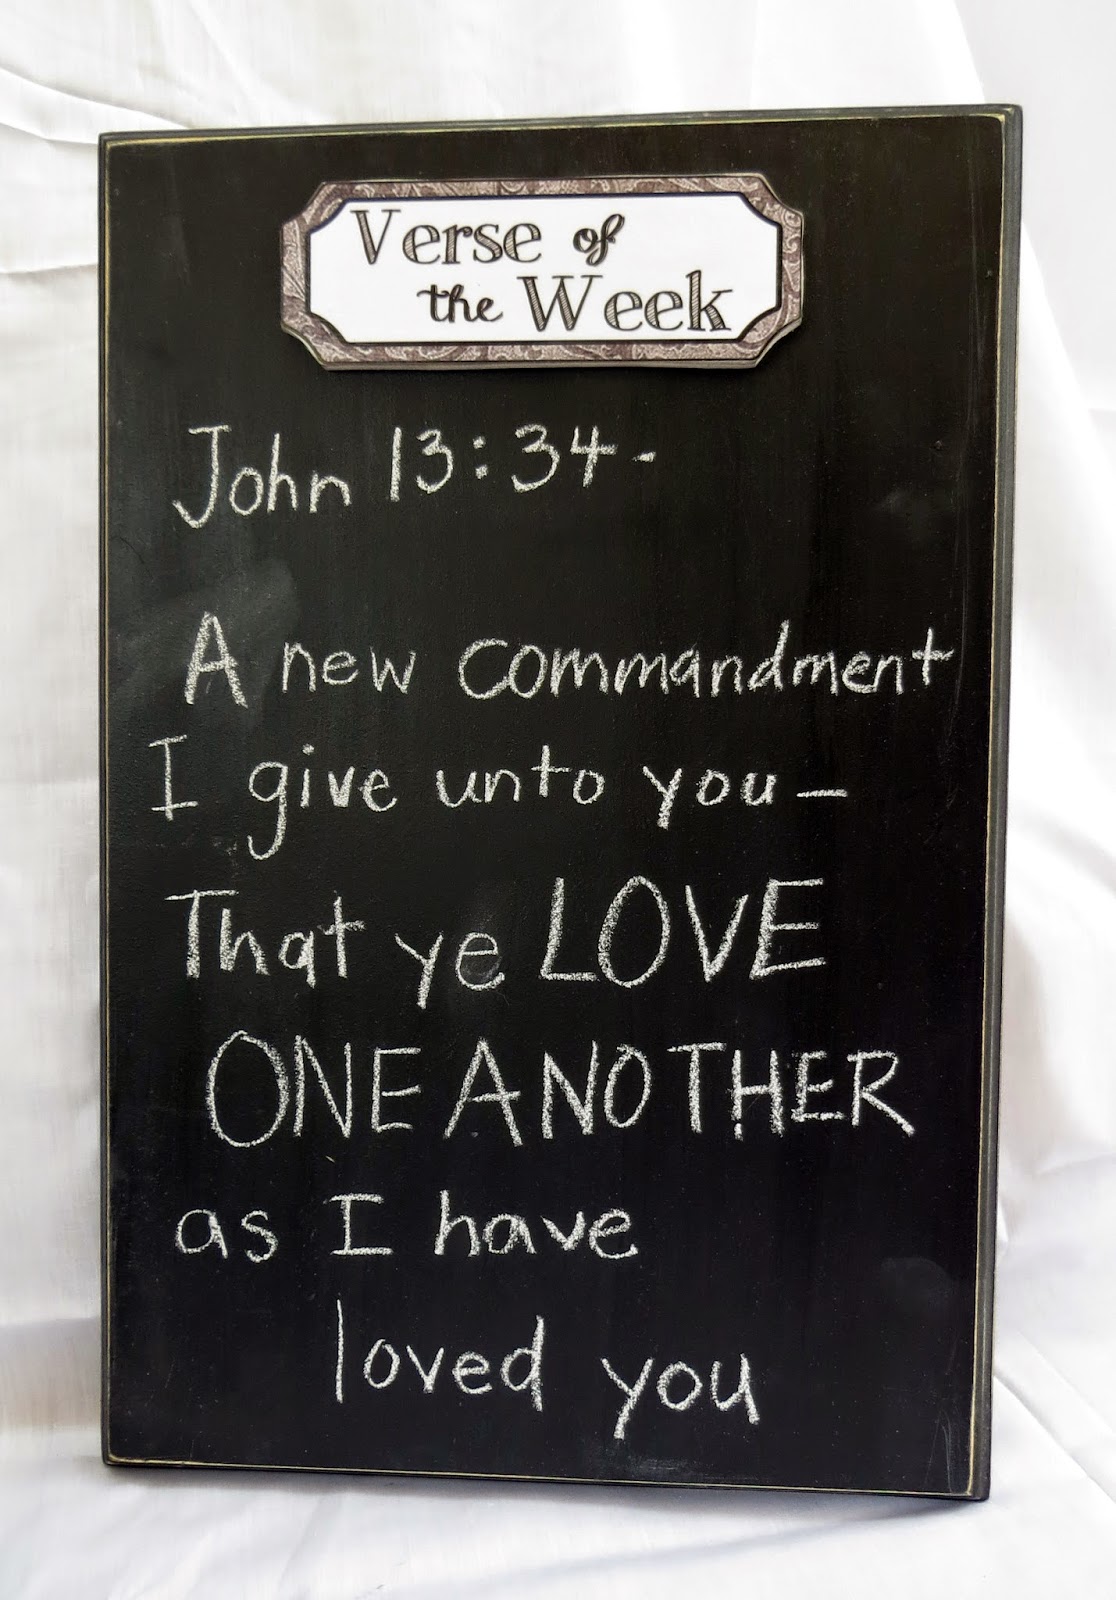 Verse of
the Week
John 13:34-
A new commandment
I give unto you-
That ye LOVE
ONE ANOTHER
as I have
loved you